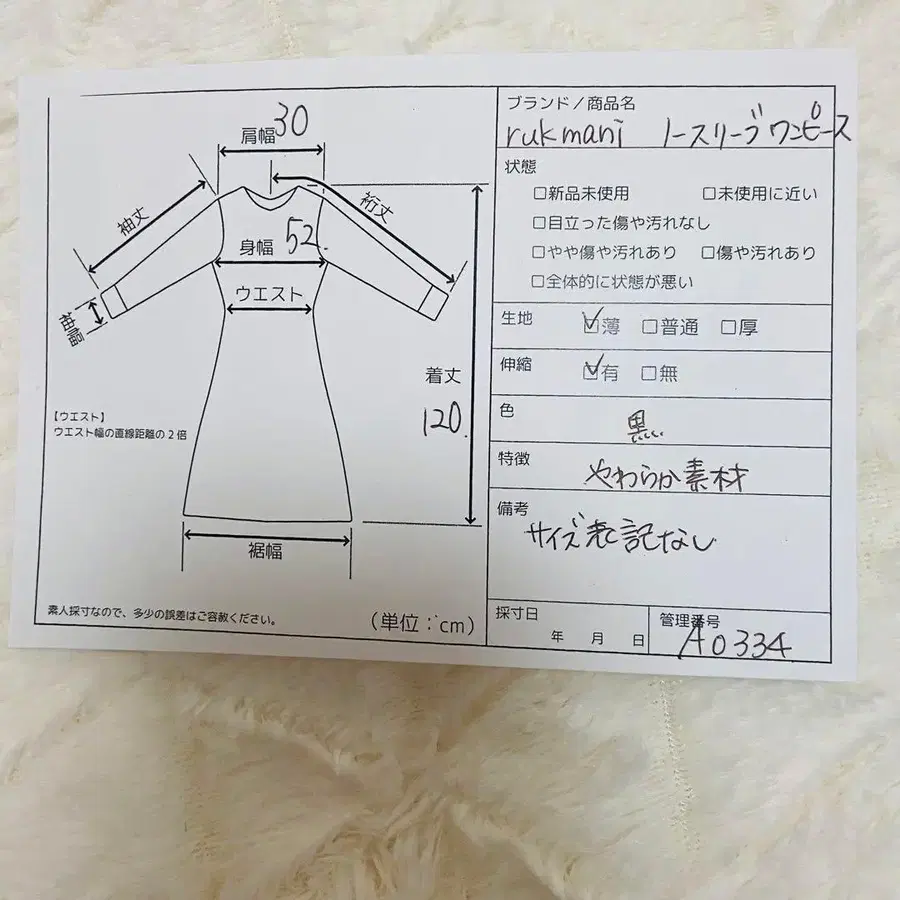 肩幅 30
袖丈
裄丈
身幅 52.
ウエスト
袖幅
着丈
120.
【ウエスト】
ウエスト幅の直線距離の2倍
裾幅
素人採寸なので、多少の誤差はご容赦ください。
(単位:cm)
ブランド/商品名
rukmani ノースリーブワンピース
状態
□新品未使用 □未使用に近い
□目立った傷や汚れなし
□やや傷や汚れあり □傷や汚れあり
□全体的に状態が悪い
生地 ☑薄 □普通 □厚
伸縮 ☑有 □無
色 黒
特徴 やわらか素材
備考
サイズ表記なし
採寸日
年 月 日
管理番号
A0334